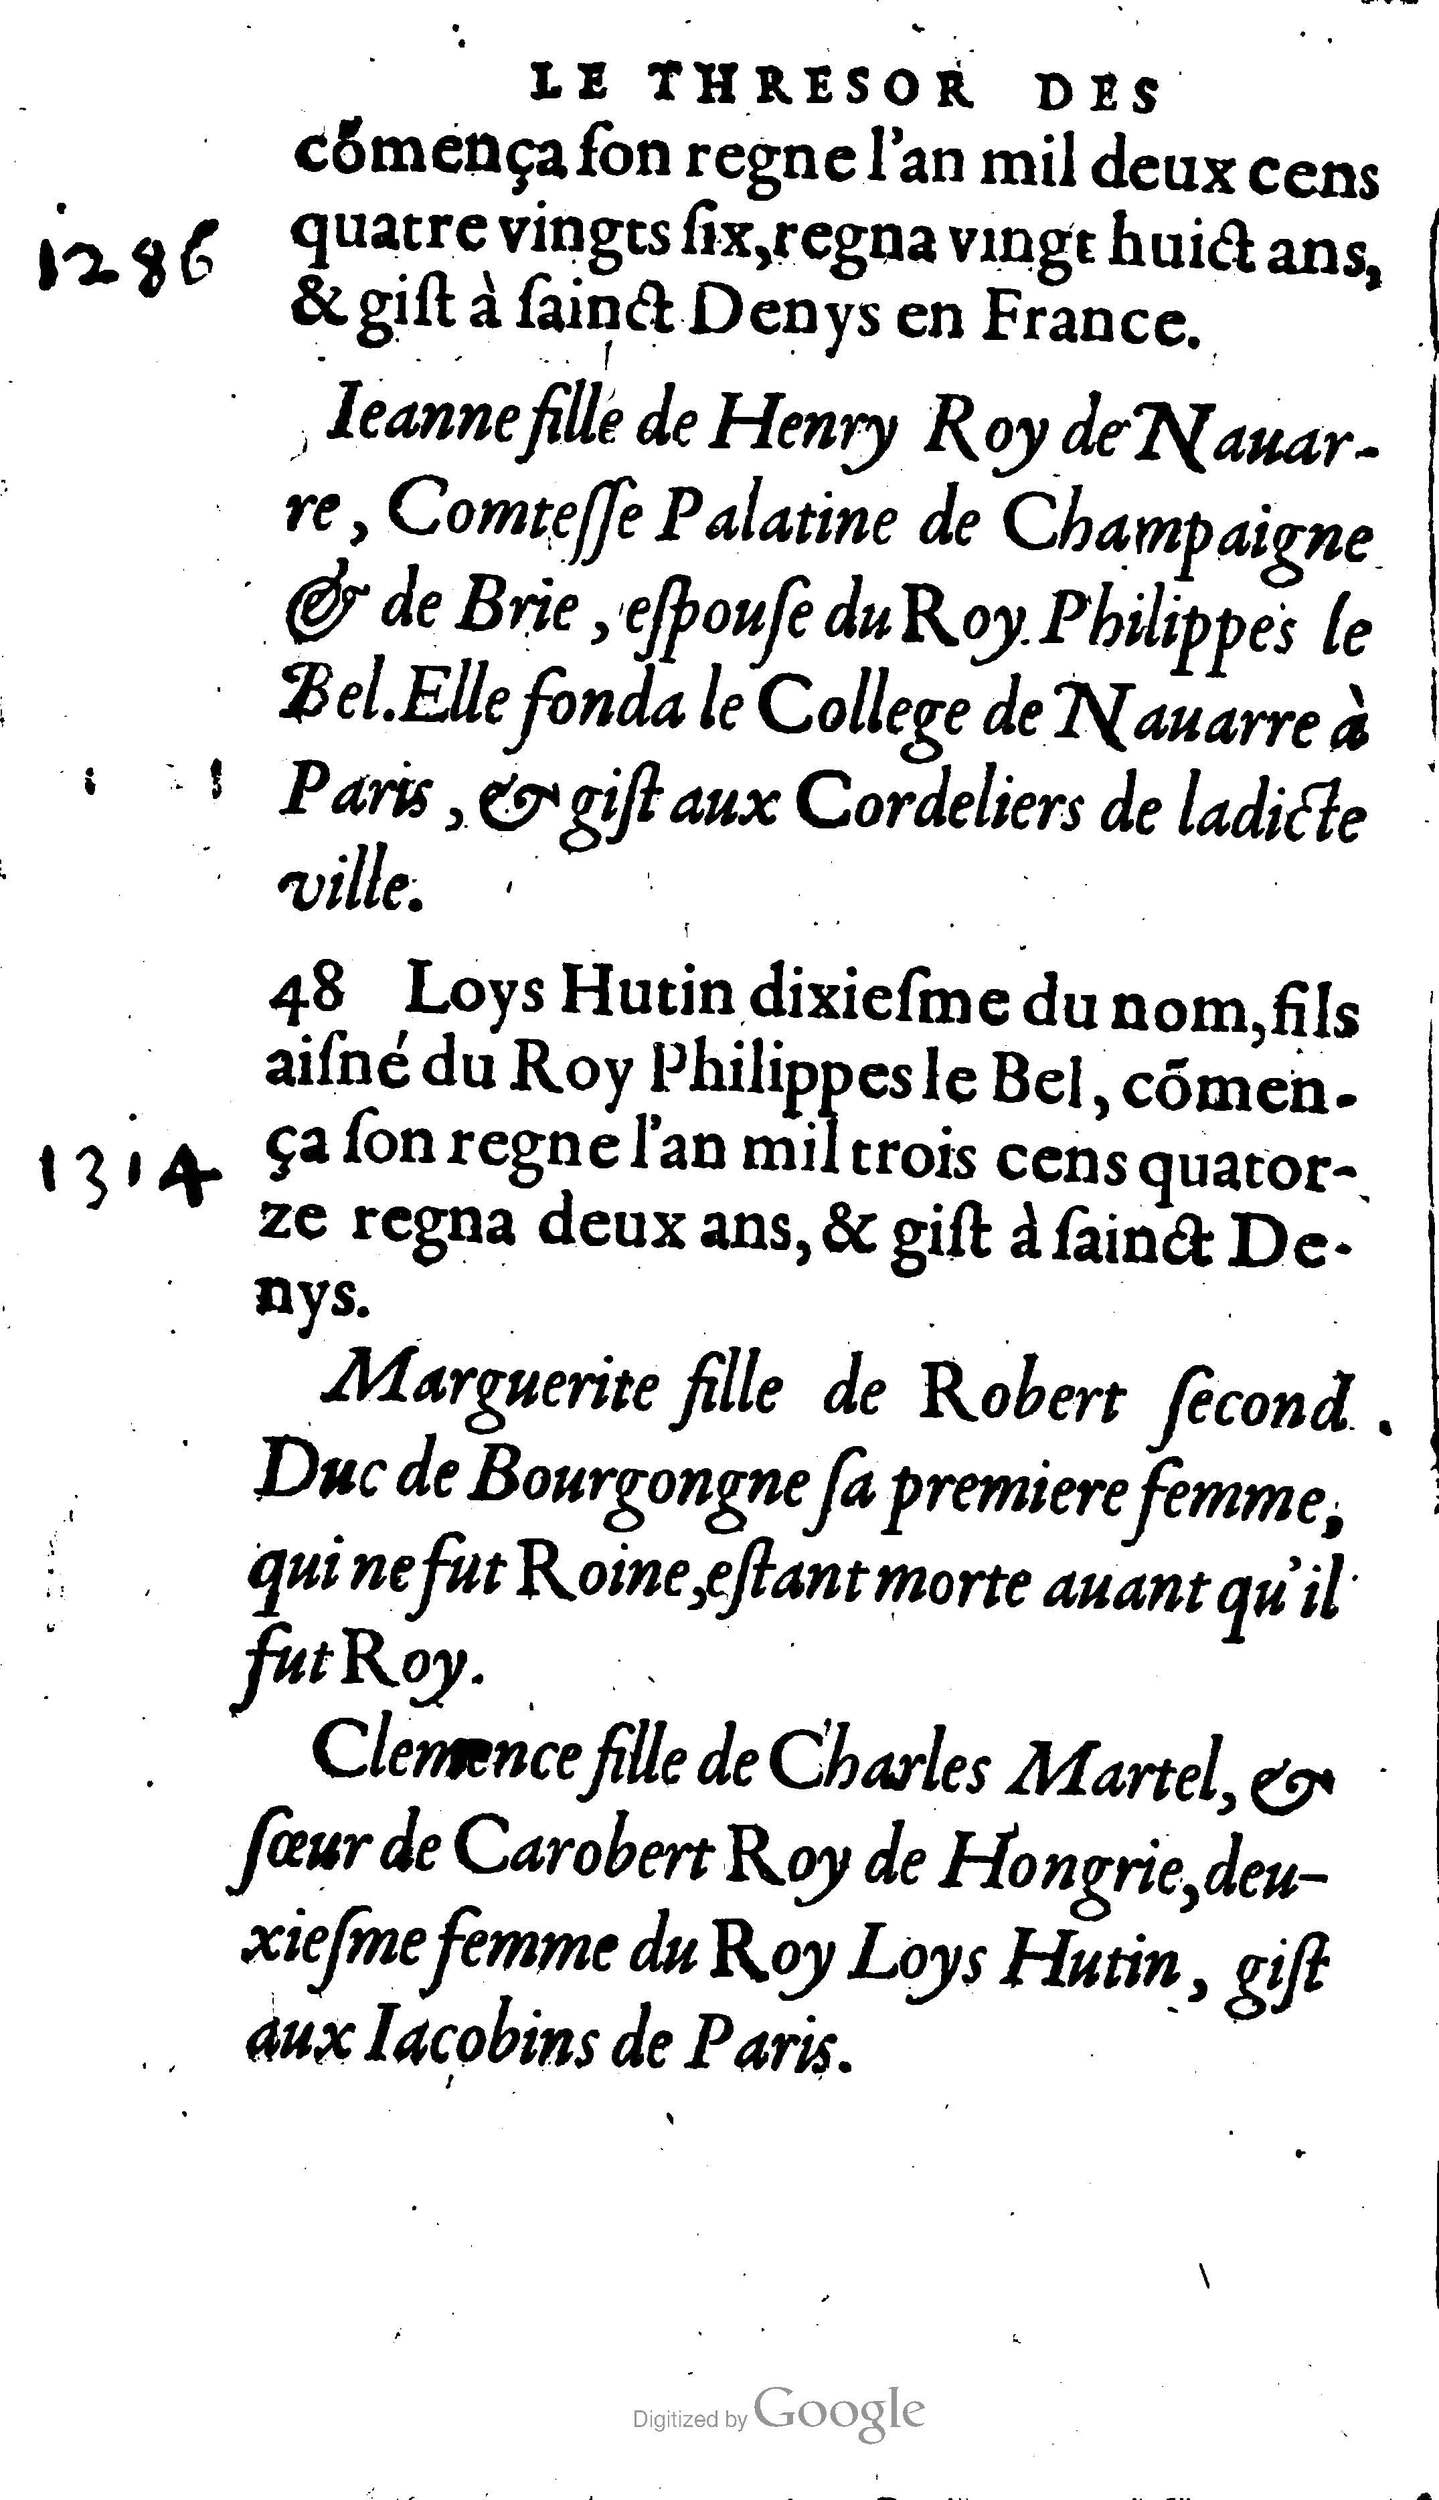 LE THRESOR DES
cõmença ſon regne l'an mil deux cens
1286 quatre vingts ſix, regna vingt huict ans,
& giſt à ſainct Denys en France.
Ieanne fille de Henry Roy de Nauar-
re, Comteſſe Palatine de Champaigne
& de Brie, eſpouſe du Roy Philippes le
Bel. Elle fonda le College de Nauarre à
Paris, & giſt aux Cordeliers de ladicte
ville.
48 Loys Hutin dixieſme du nom, fils
aiſné du Roy Philippes le Bel, cõmen-
1314 ça ſon regne l'an mil trois cens quator-
ze regna deux ans, & giſt à ſainct De-
nys.
Marguerite fille de Robert ſecond
Duc de Bourgongne ſa premiere femme,
qui ne fut Roine, eſtant morte auant qu'il
fut Roy.
Clemence fille de Charles Martel, &
ſœur de Carobert Roy de Hongrie, deu-
xieſme femme du Roy Loys Hutin, giſt
aux Iacobins de Paris.
Digitized by Google